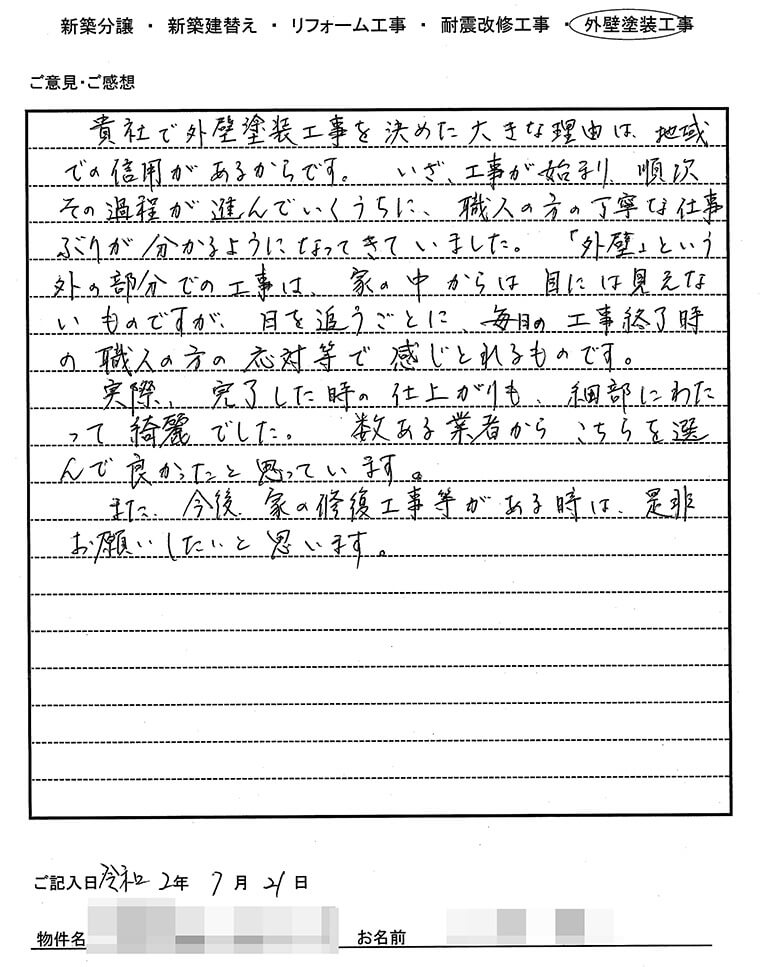 新築分譲 ・ 新築建替え ・ リフォーム工事 ・ 耐震改修工事 ・ 外壁塗装工事
ご意見・ご感想
貴社で外壁塗装工事を決めた大きな理由は、地域
での信用があるからです。 いざ、工事が始まり、順次
その過程が進んでいくうちに、職人の方の丁寧な仕事
ぶりが分かるようになってきていました。「外壁」という
外の部分での工事は、家の中からは目には見えな
いものですが、日を追うごとに、毎日の工事終了時
の職人の方の応対等で感じとれるものです。
実際、完了した時の仕上がりも、細部にわた
って綺麗でした。 数ある業者からこちらを選
んで良かったと思っています。
また、今後、家の修復工事等がある時は、是非
お願いしたいと思います。
ご記入日 令和 2年 7月 21日
物件名 お名前